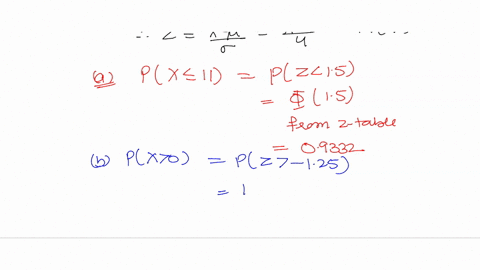 ∴ Z =
(a) P(X ≤ 11) = P(Z < 1.5)
= Φ(1.5)
from z-table
= 0.9332
(b) P(X > 0) = P(Z > -1.25)
= 1